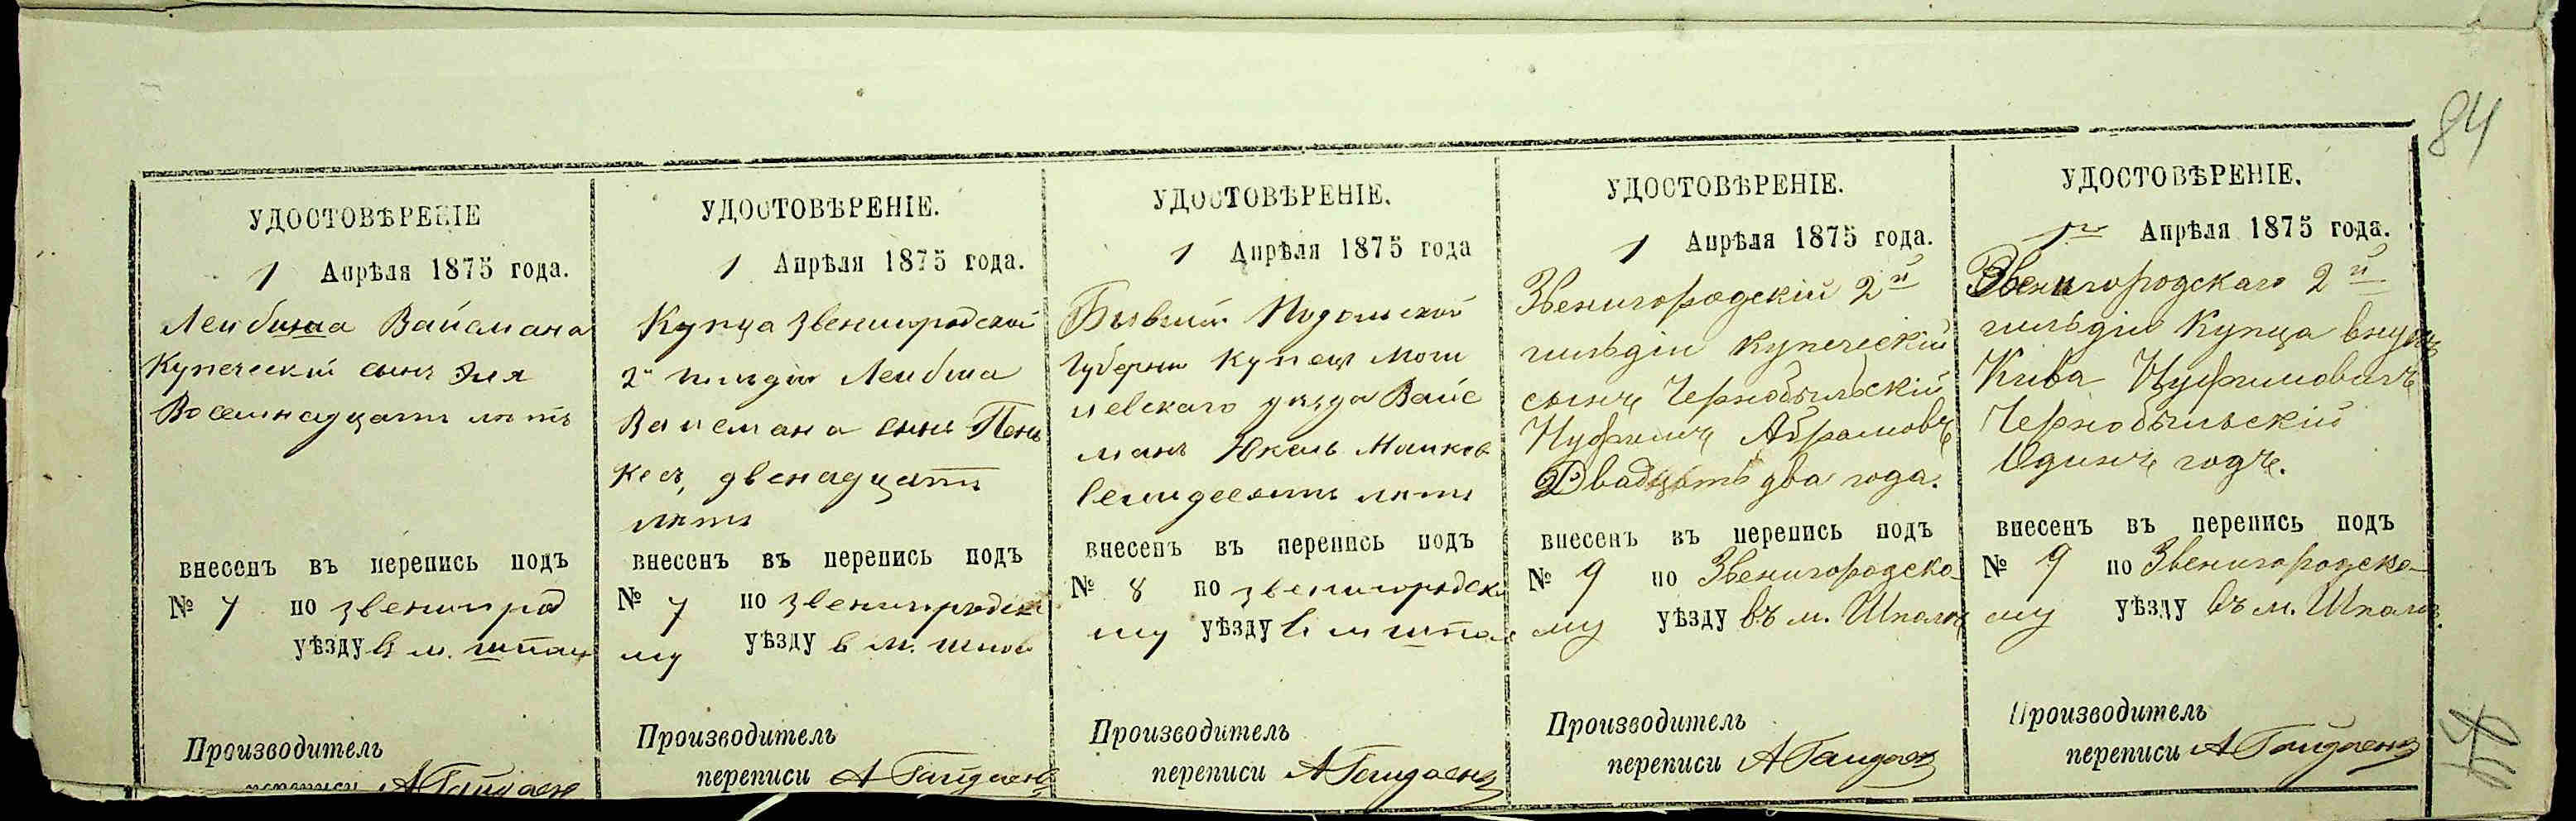 84
УДОСТОВѢРЕНІЕ
1 Апрѣля 1875 года.
Лейбиша Вайсмана
Купеческій сынъ Эля
Восемнадцать лѣтъ
внесенъ въ перепись подъ
№ 7 по звенигород
уѣзду в м. шпол
Производитель
переписи А Гайдаен
УДОСТОВѢРЕНІЕ.
1 Апрѣля 1875 года.
Купца звенигородской
2й гильдіи Лейбиша
Вайсмана сынъ Пень
кес, двенадцать
лѣтъ
внесенъ въ перепись подъ
№ 7 по звенигородско
му уѣзду в м. шпол
Производитель
переписи А Гайдаен
УДОСТОВѢРЕНІЕ.
1 Апрѣля 1875 года
Бывшій Подольской
Губерніи Купец Моги
левскаго уѣзда Вайс
манъ Юкель Машков
семидесять лѣтъ
внесенъ въ перепись подъ
№ 8 по звенигородско
му уѣзду в м шпол
Производитель
переписи А Гайдаен
УДОСТОВѢРЕНІЕ.
1 Апрѣля 1875 года.
Звенигородскій 2й
гильдіи купеческій
сынъ Чернобыльскій
Нуфимъ Абрамовъ
Двадцать два года.
внесенъ въ перепись подъ
№ 9 по Звенигородско-
му уѣзду въ м. Шполѣ
Производитель
переписи А Гайдаен
УДОСТОВѢРЕНІЕ.
1го Апрѣля 1875 года.
Звенигородскаго 2й
гильдіи Купца внукъ
Кива Нуфимовичъ
Чернобыльскій
Одинъ годъ.
внесенъ въ перепись подъ
№ 9 по Звенигородско-
му уѣзду въ м. Шполѣ.
Производитель
переписи А Гайдаен